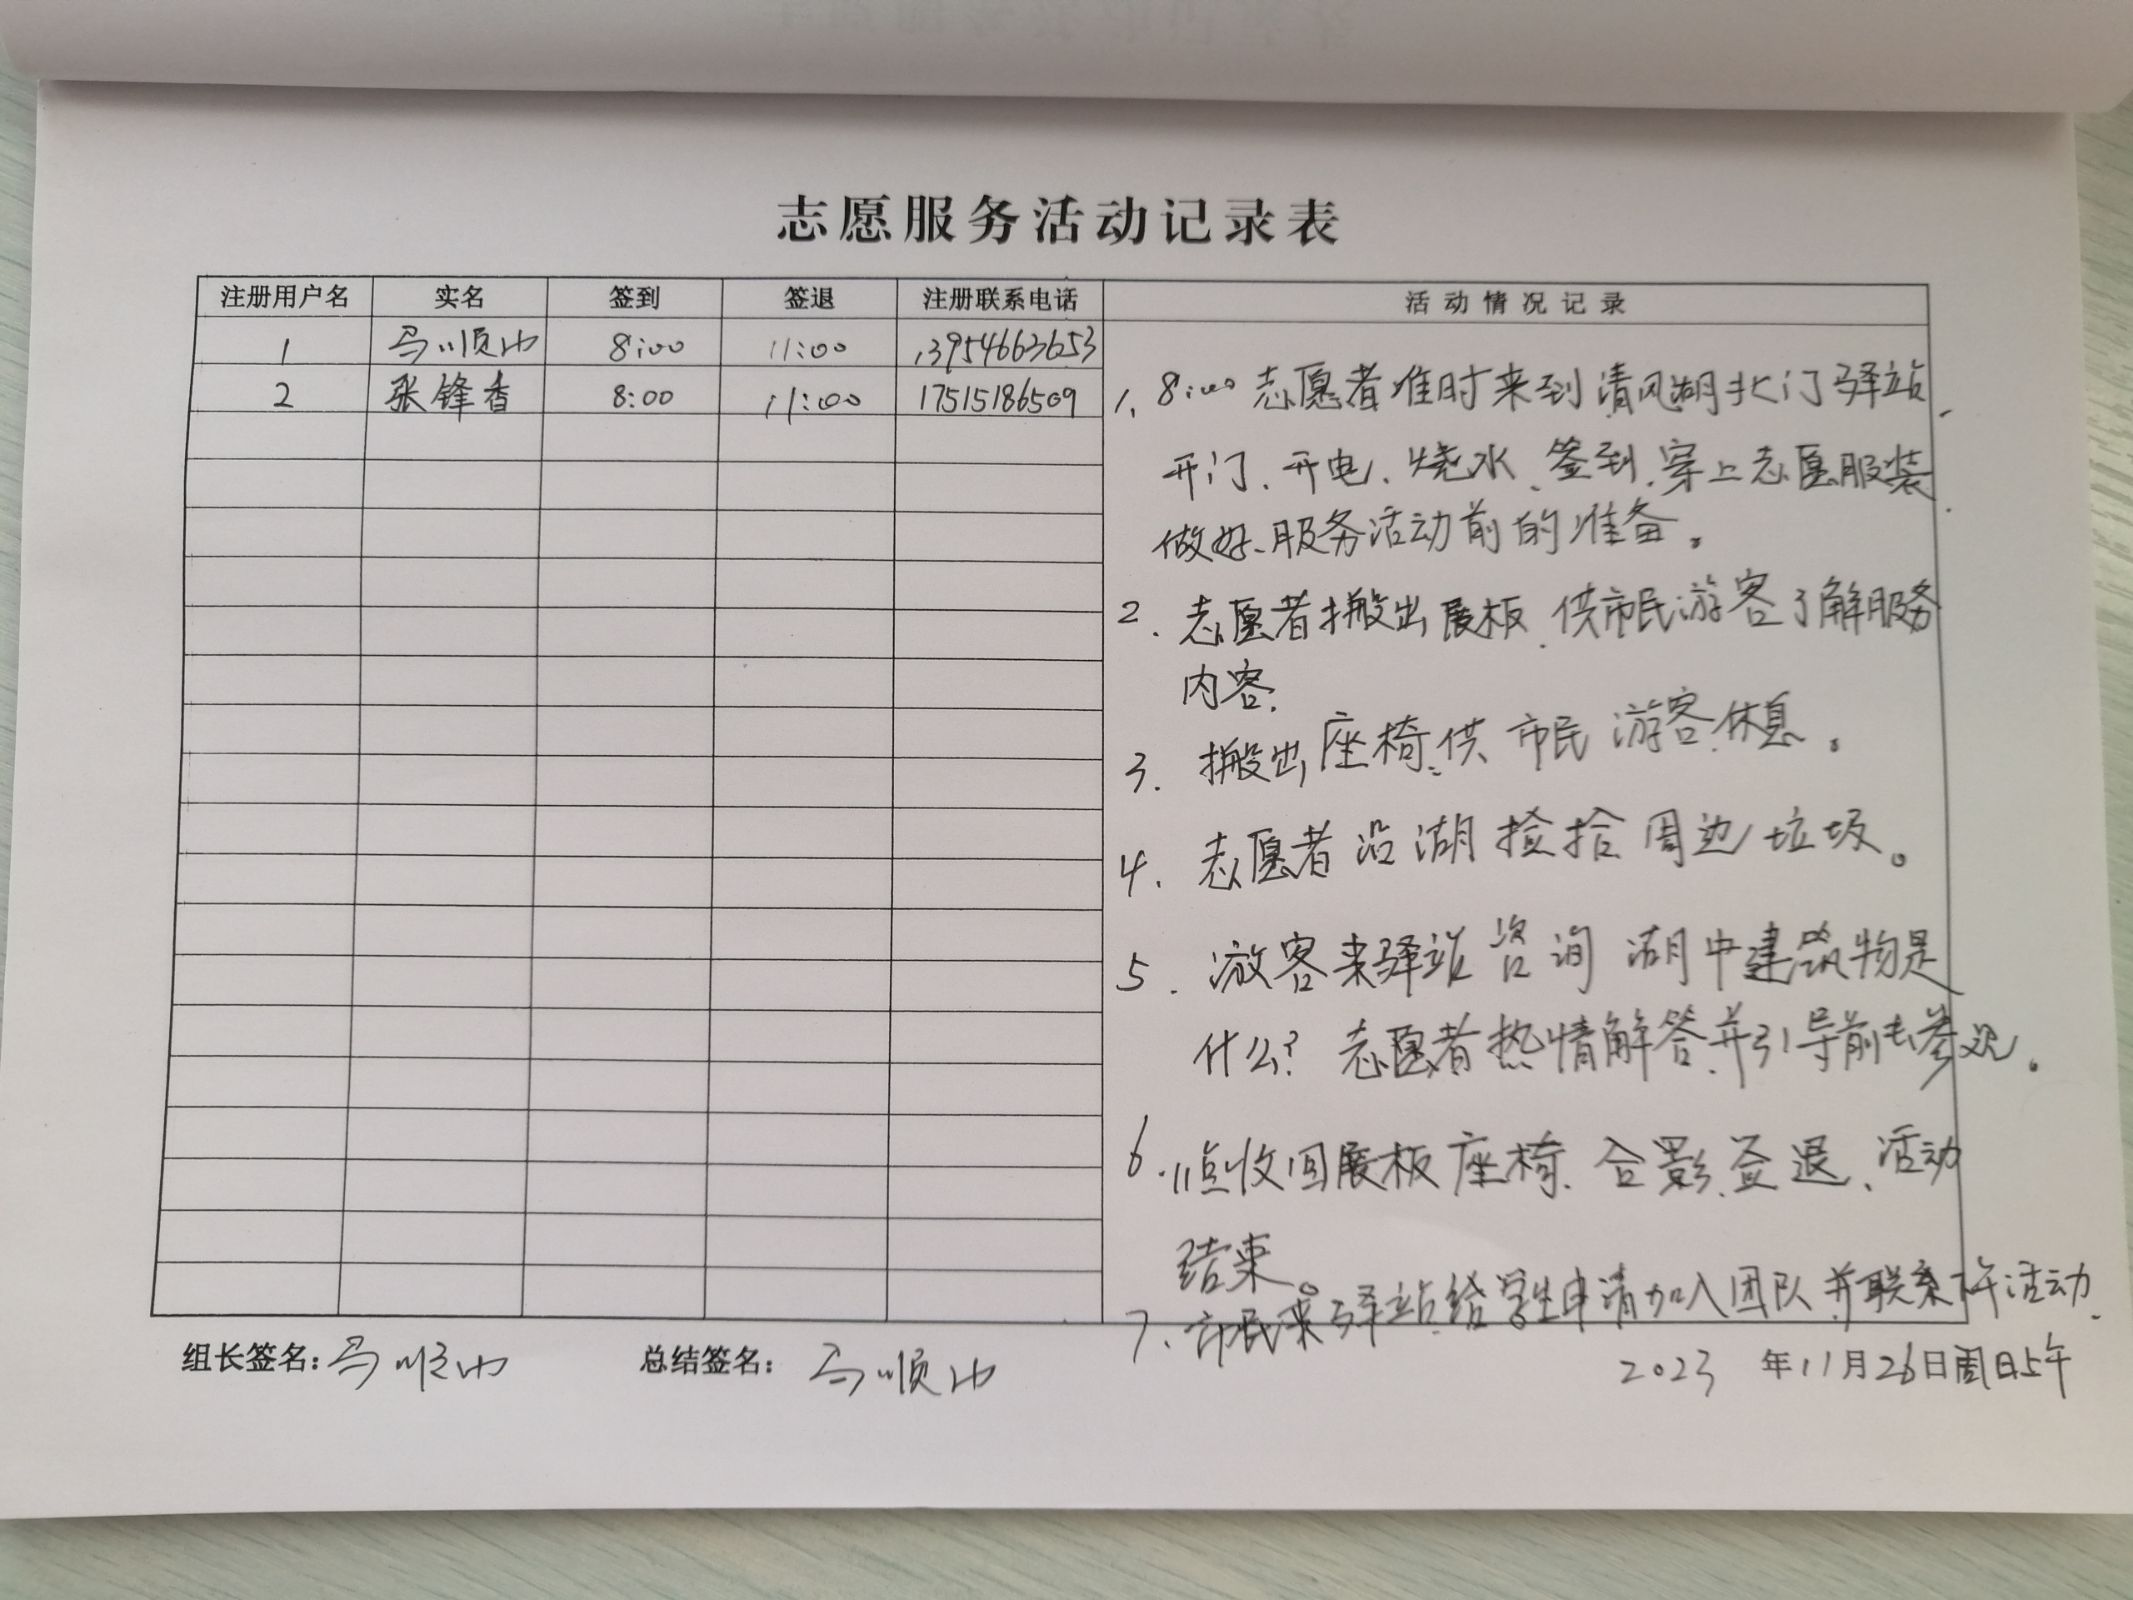 志愿服务活动记录表
注册用户名 实名 签到 签退 注册联系电话 活动情况记录
1 马顺山 8:00 11:00 13954663653
2 张锋香 8:00 11:00 17515186509
1、8:00志愿者准时来到清风湖北门驿站、
开门、开电、烧水、签到、穿上志愿服装
做好服务活动前的准备。
2、志愿者搬出展板、供市民游客了解服务
内容.
3、搬出座椅、供市民游客休息。
4、志愿者沿湖捡拾周边垃圾。
5、游客来驿站咨询湖中建筑物是
什么?志愿者热情解答并引导前去参观。
6、11点收回展板座椅、合影、签退、活动
结束。
7、市民来驿站给学生申请加入团队并联系下午活动.
组长签名:马顺山 总结签名:马顺山 2023年11月26日周日上午